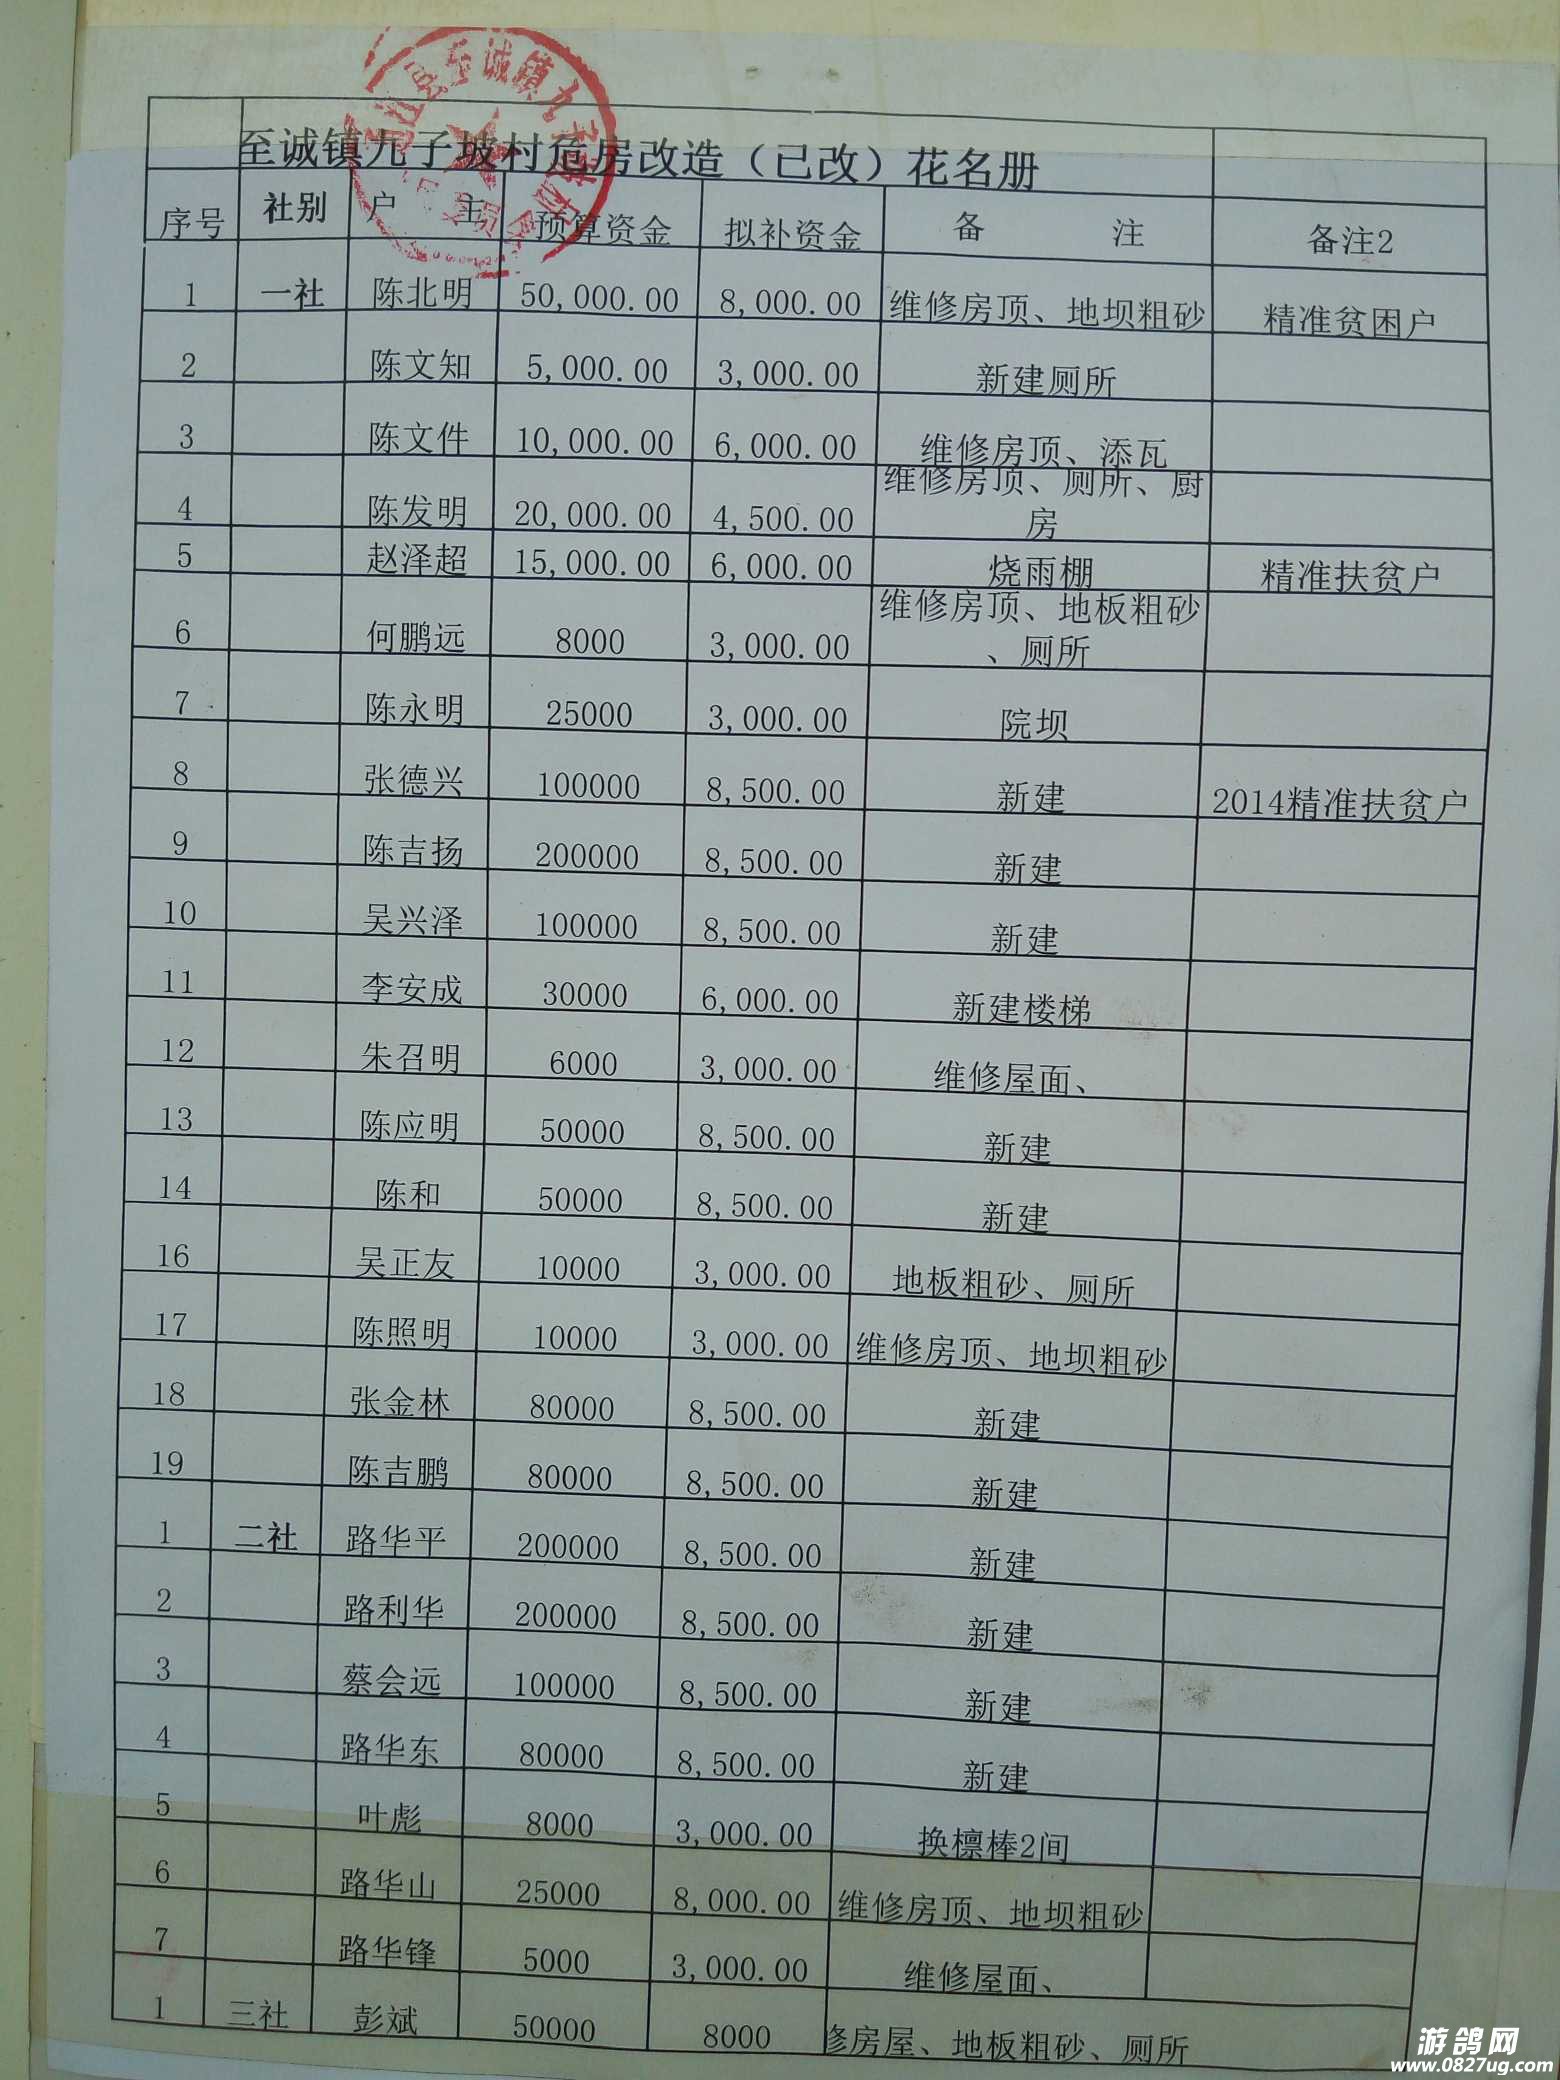 至诚镇九子坡村危房改造（已改）花名册
序号 社别 户 主 预算资金 拟补资金 备 注 备注2
1 一社 陈北明 50,000.00 8,000.00 维修房顶、地坝粗砂 精准贫困户
2 陈文知 5,000.00 3,000.00 新建厕所
3 陈文件 10,000.00 6,000.00 维修房顶、添瓦
4 陈发明 20,000.00 4,500.00 维修房顶、厕所、厨
房
5 赵泽超 15,000.00 6,000.00 烧雨棚 精准扶贫户
6 何鹏远 8000 3,000.00 维修房顶、地板粗砂
、厕所
7 陈永明 25000 3,000.00 院坝
8 张德兴 100000 8,500.00 新建 2014精准扶贫户
9 陈吉扬 200000 8,500.00 新建
10 吴兴泽 100000 8,500.00 新建
11 李安成 30000 6,000.00 新建楼梯
12 朱召明 6000 3,000.00 维修屋面、
13 陈应明 50000 8,500.00 新建
14 陈和 50000 8,500.00 新建
16 吴正友 10000 3,000.00 地板粗砂、厕所
17 陈照明 10000 3,000.00 维修房顶、地坝粗砂
18 张金林 80000 8,500.00 新建
19 陈吉鹏 80000 8,500.00 新建
1 二社 路华平 200000 8,500.00 新建
2 路利华 200000 8,500.00 新建
3 蔡会远 100000 8,500.00 新建
4 路华东 80000 8,500.00 新建
5 叶彪 8000 3,000.00 换檩棒2间
6 路华山 25000 8,000.00 维修房顶、地坝粗砂
7 路华锋 5000 3,000.00 维修屋面、
1 三社 彭斌 50000 8000 修房屋、地板粗砂、厕所
游鸽网
www.0827ug.com